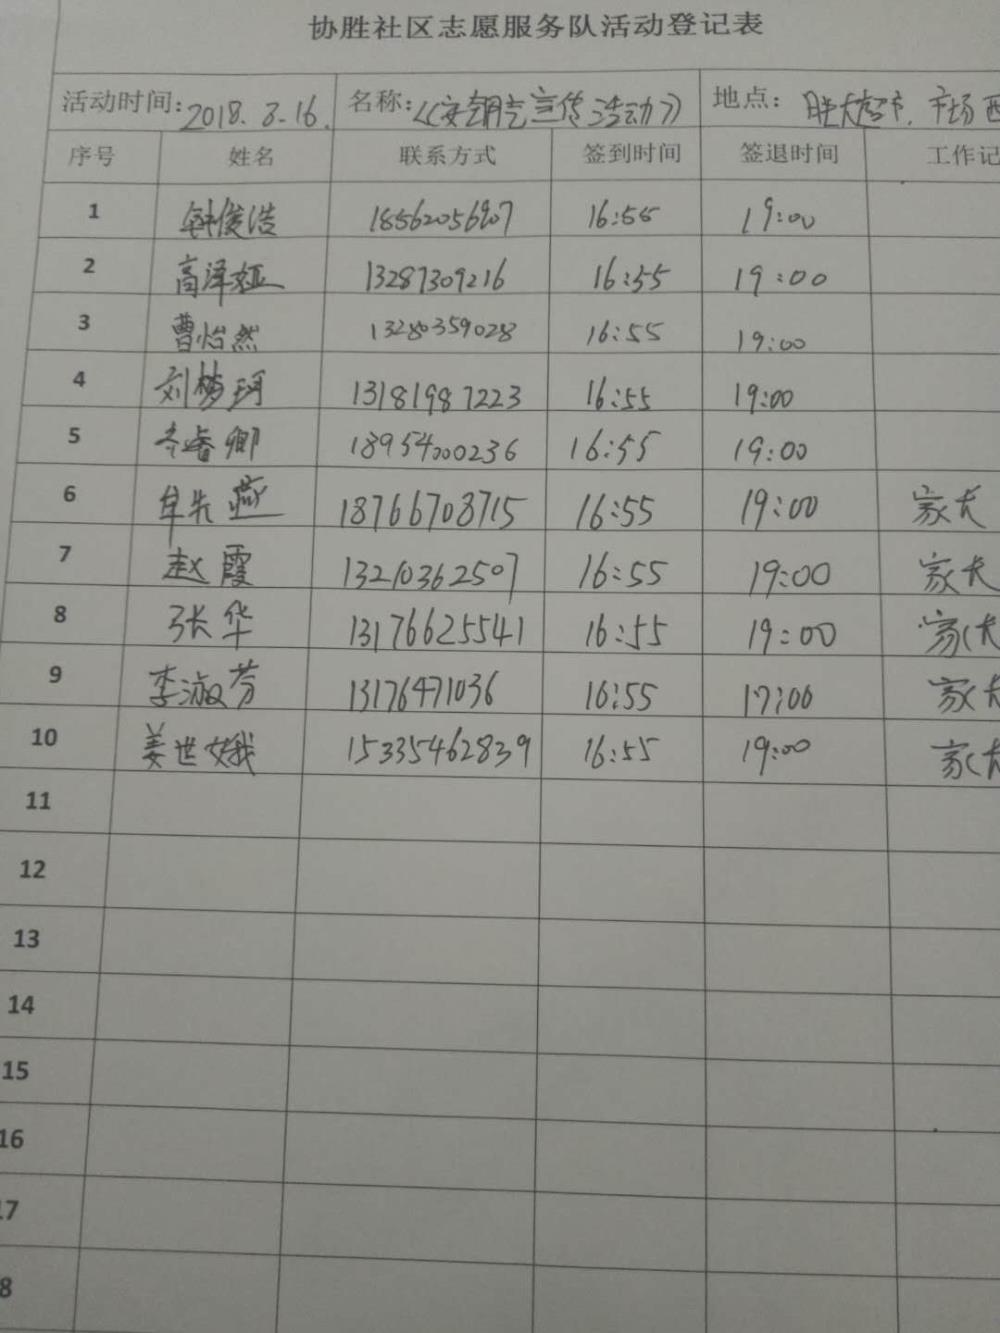 协胜社区志愿服务队活动登记表
活动时间: 2018.3.16. 名称:《安全用气宣传活动》 地点: 胜大超市.市场西
序号 姓名 联系方式 签到时间 签退时间 工作记
1 钟俊浩 18562056907 16:55 19:00
2 高泽娅 13287309216 16:55 19:00
3 曹怡然 13280359028 16:55 19:00
4 刘梦珂 13181987223 16:55 19:00
5 李睿卿 18954000236 16:55 19:00
6 牟先燕 18766708715 16:55 19:00 家长
7 赵霞 13210362507 16:55 19:00 家长
8 张华 13176625541 16:55 19:00 家长
9 李淑芳 13176471036 16:55 17:00 家长
10 姜世娥 15335462839 16:55 19:00 家长
11
12
13
14
15
16
17
8